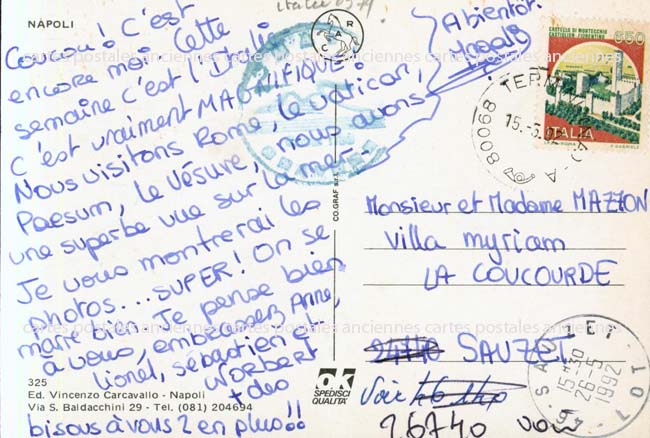 NAPOLI
italie 0974
Coucou! C'est
encore moi. Cette
semaine c'est l'Italie
c'est vraiment MAGNIFIQUE!
Nous visitons Rome, le Vatican,
Paesum, le Vésuve, nous avons
une superbe vue sur la mer.
Je vous montrerai les
photos... SUPER! On se
marre bien. Je pense bien
à vous, embrassez Anne,
lionel, sébastien et
Norbert
+ des
bisous à vous 2 en plus!!
A bientôt.
325
Ed. Vincenzo Carcavallo - Napoli
Via S. Baldacchini 29 - Tel. (081) 204694
CO.GRAF s.r.l.
CRAC
ok
SPEDISCI
QUALITA'
CASTELLO DI MONTECCHIO
CASTIGLION FIORENTINO
650
ITALIA
80068 TERM
15.-5.92
Monsieur et Madame MAZZON
villa myriam
LA COUCOURDE
SAUZET
Voir
26740
SAUZET
LOT
15H30
26-5
1992
cartes postales anciennes cartes postales anciennes
cartes postales anciennes cartes postales anciennes